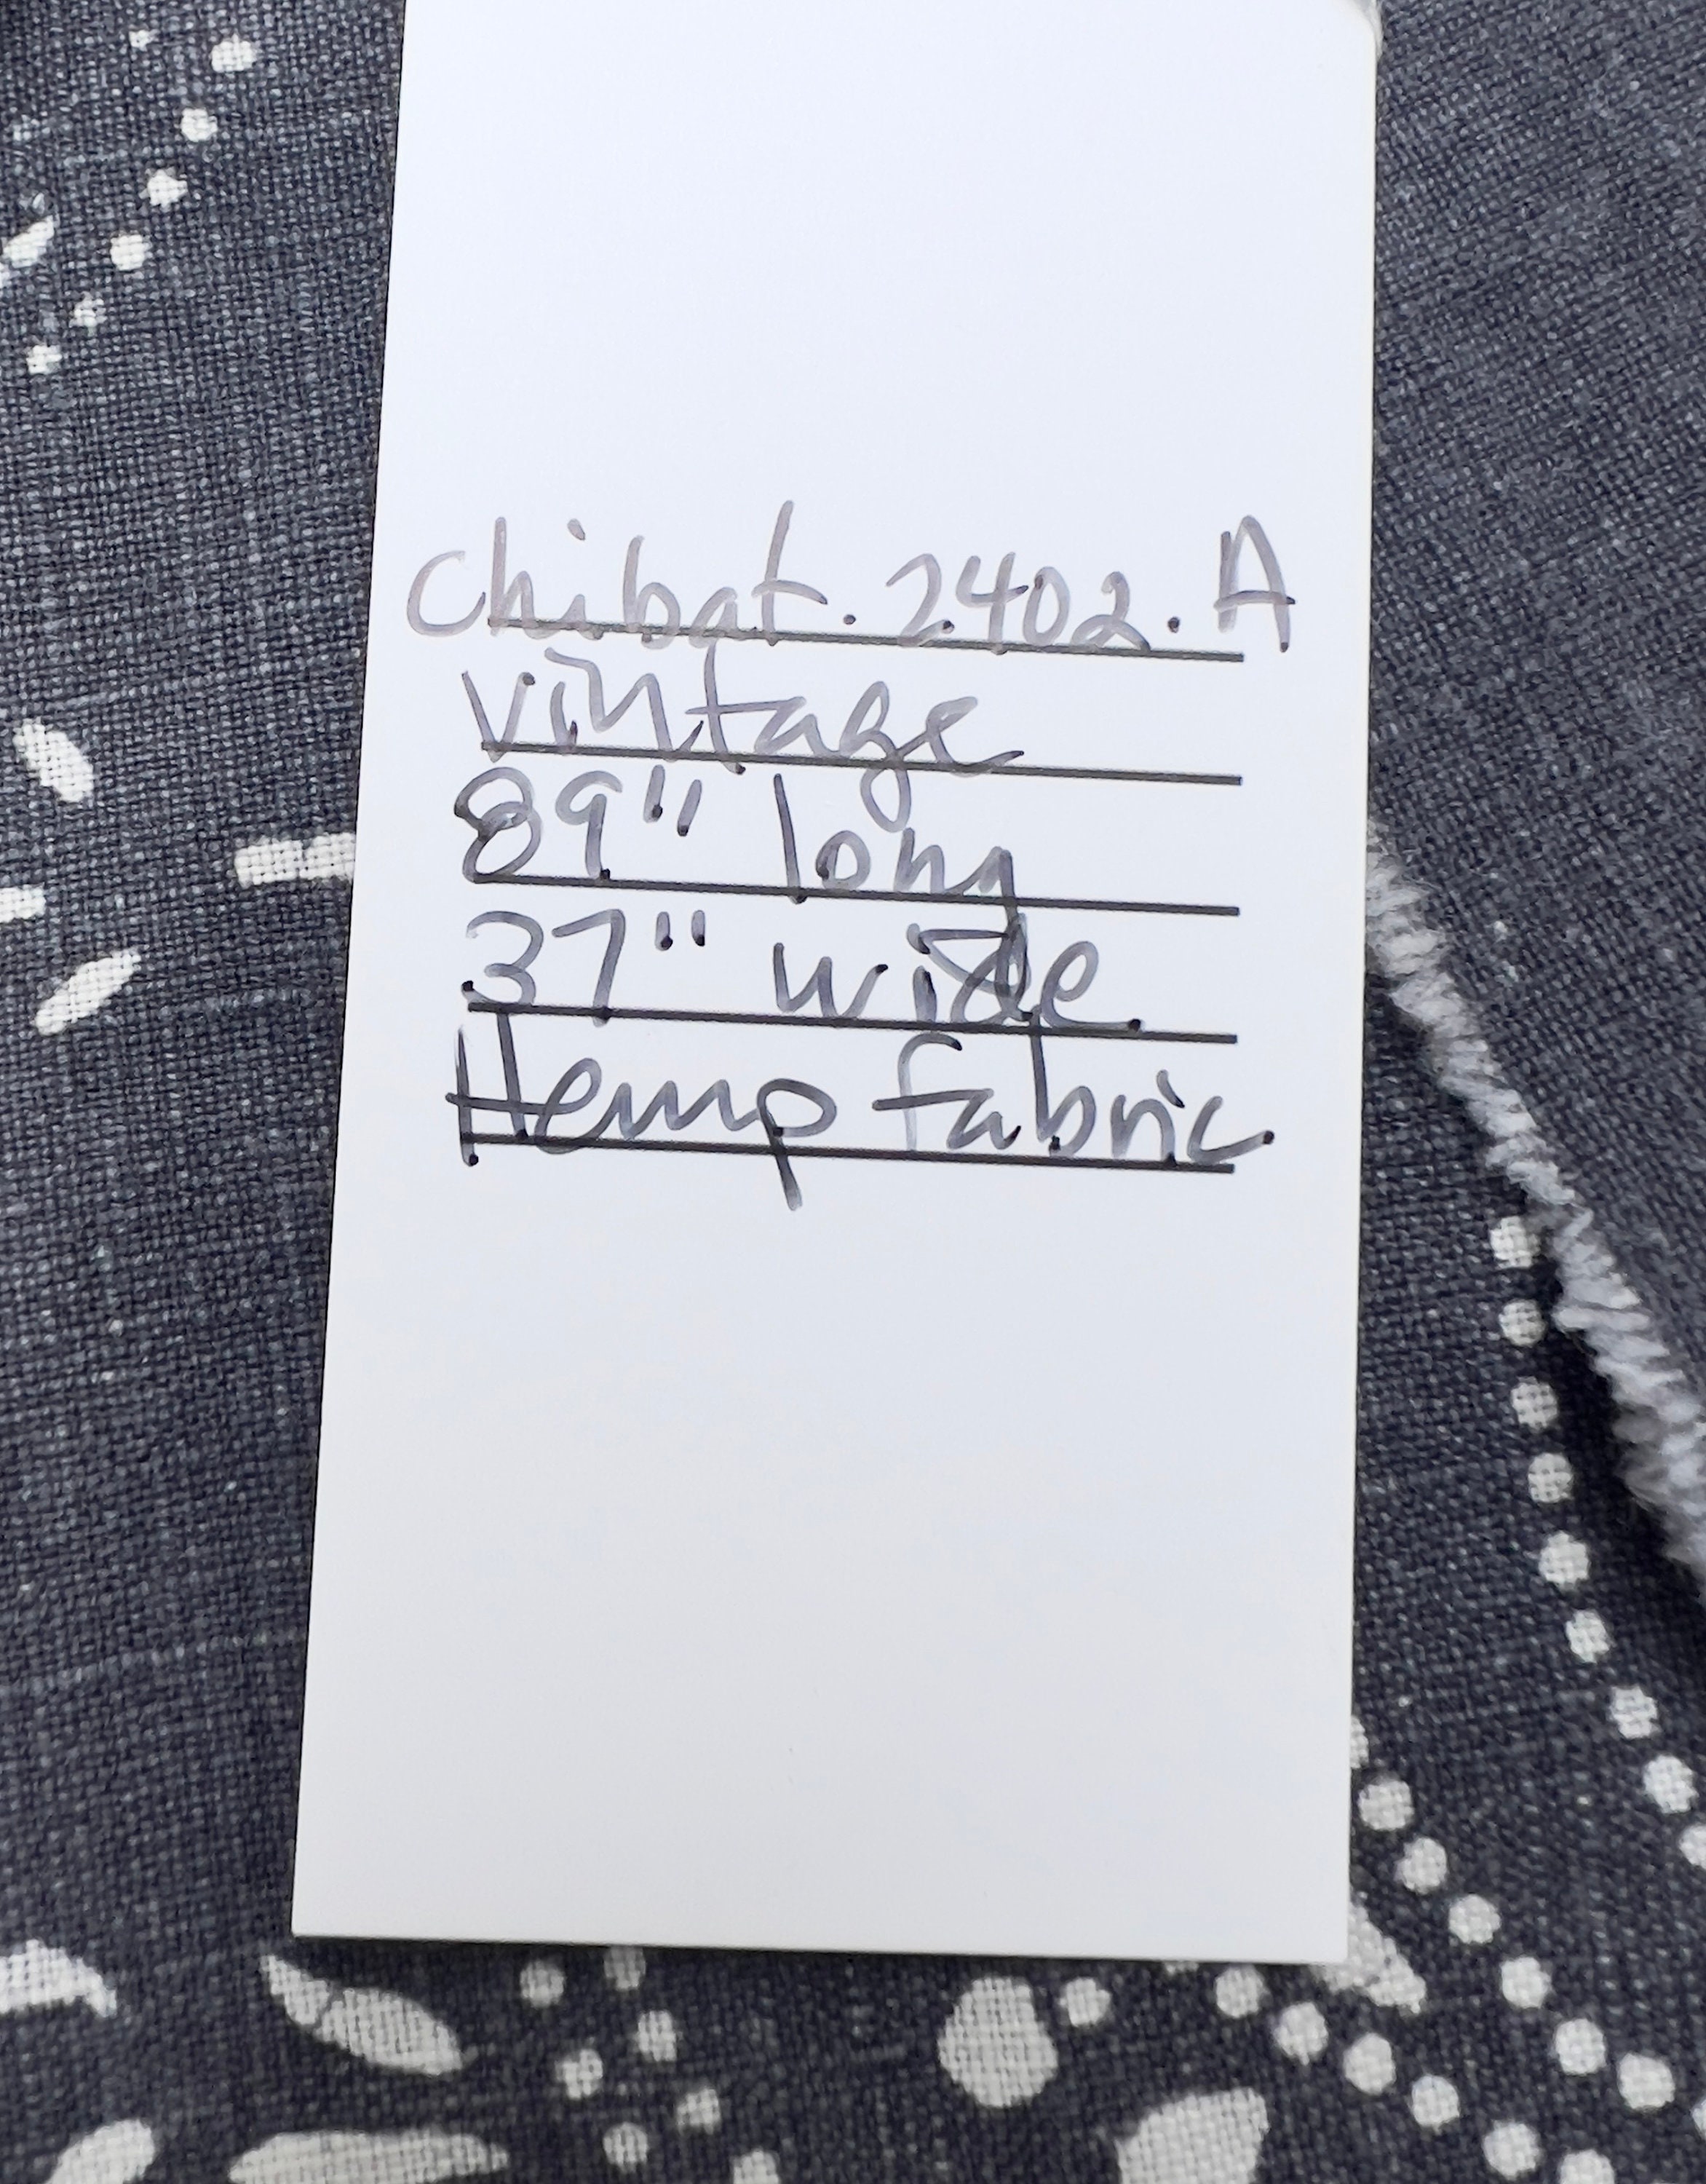 Chibat.2402.A
Vintage
89" long
37" wide
Hemp fabric